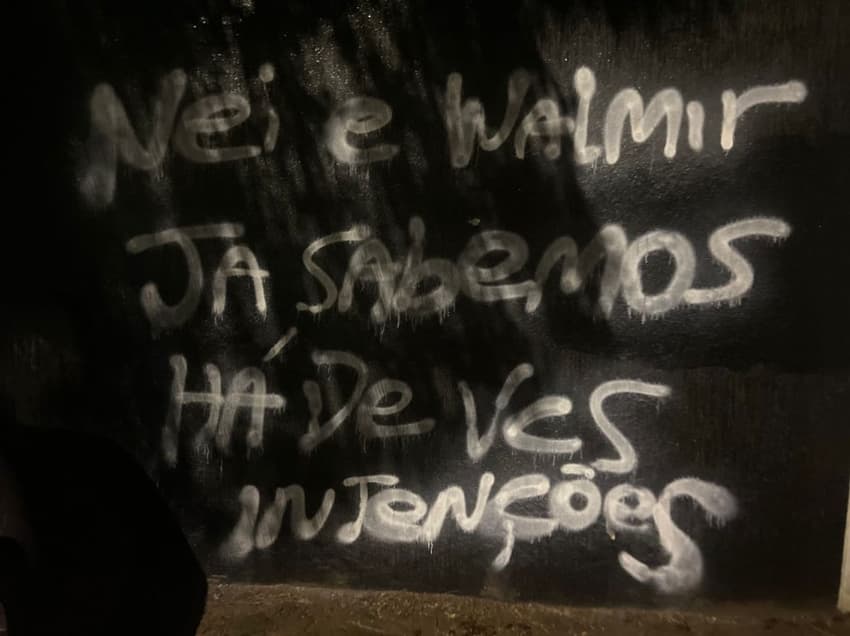 Nei e WALMIr
JA SAbemOS
HÁ De VCS
INTeNÇões